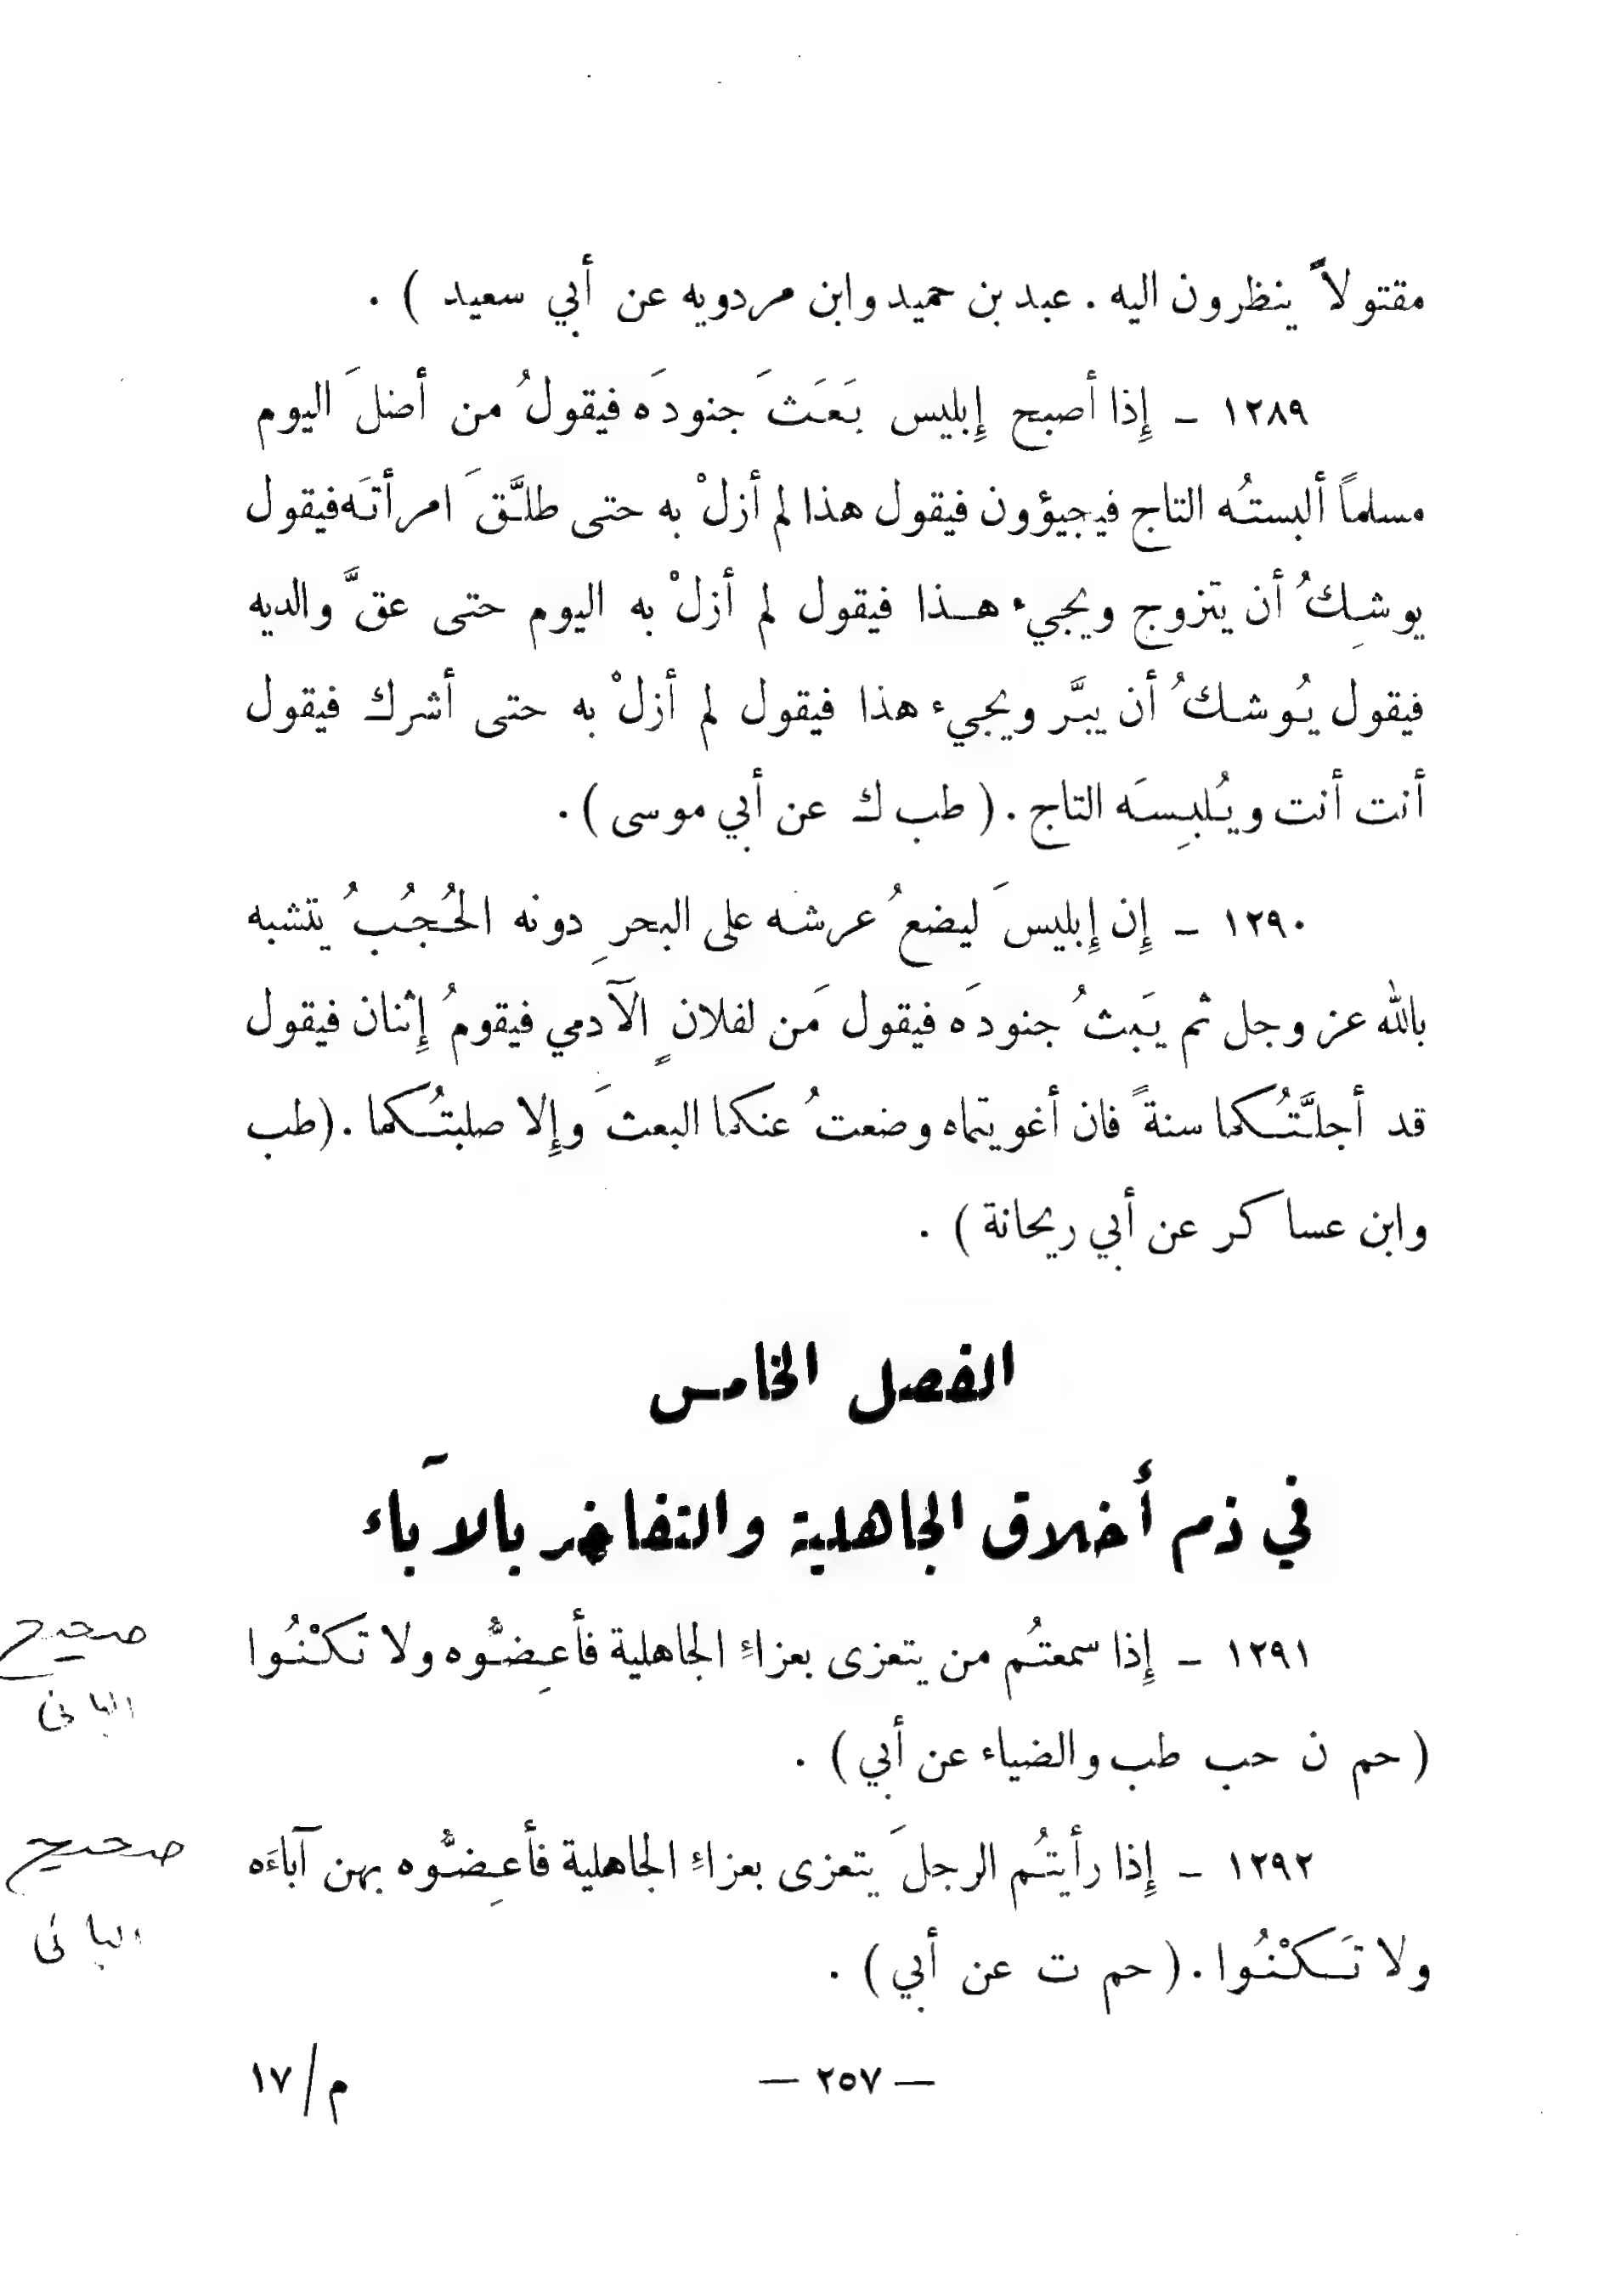 مقتولاً ينظرون اليه . عبد بن حميد وابن مردويه عن أبي سعيد ) .
١٢٨٩ ـ إِذا أصبح إِبليس بَعَثَ جنودَه فيقولُ من أضلَ اليوم
مسلماً ألبستُه التاج فيجيؤون فيقول هذا لم أزلْ به حتى طلَّقَ امرأتَه فيقول
يوشِكُ أن يتزوج ويجيء هـذا فيقول لم أزلْ به اليوم حتى عقَّ والديه
فيقول يُوشكُ أن يبَّر ويجيء هذا فيقول لم أزلْ به حتى أشرك فيقول
أنت أنت ويُلبِسَه التاج . ( طب ك عن أبي موسى ) .
١٢٩٠ ـ إِن إِبليسَ ليضعُ عرشه على البحرِ دونه الحُجُبُ يتشبه
بالله عز وجل ثم يَبثُ جنودَه فيقول مَن لفلانٍ الآدمي فيقومُ إِثنان فيقول
قد أجلَّتُكما سنةً فان أغويتماه وضعتُ عنكما البعثَ وإِلا صلبتُكما . (طب
وابن عساكر عن أبي ريحانة ) .
الفصل الخامس
في ذم أخلاق الجاهلية والتفاخر بالآباء
١٢٩١ ـ إِذا سمعتُم من يتعزى بعزاءِ الجاهلية فأعِضُّوه ولا تَكْنُوا
صحيح
الباني
( حم ن حب طب والضياء عن أبي ) .
١٢٩٢ ـ إِذا رأيتُم الرجلَ يتعزى بعزاءِ الجاهلية فأعِضُّوه بهن آباءَه
صحيح
الباني
ولا تَكْنُوا . ( حم ت عن أبي ) .
— ٢٥٧ —
م/١٧